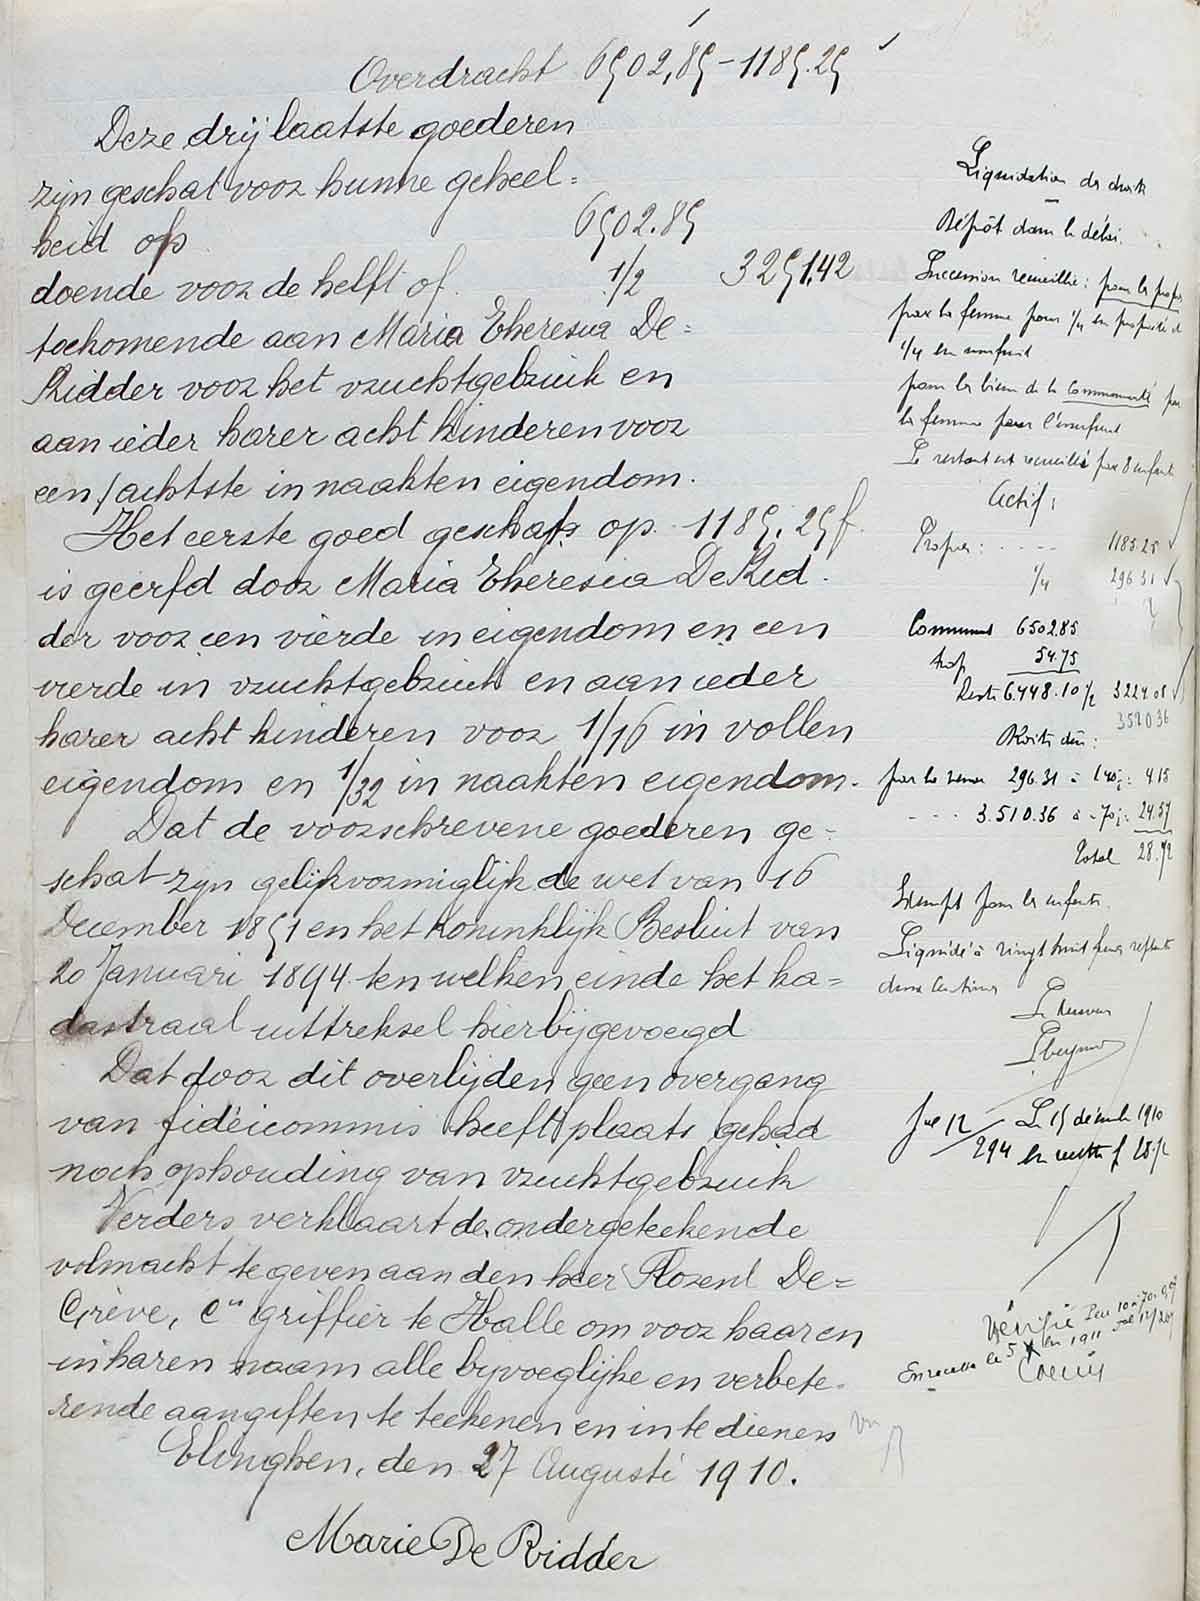 Overdracht 6502,85 – 1185.25
Deze drij laatste goederen
zijn geschat voor hunne geheel=
heid op 6502.85
doende voor de helft of 1/2 3251,42
toekomende aan Maria Theresia De=
Ridder voor het vruchtgebruik en
aan ieder harer acht kinderen voor
een/achtste in naakten eigendom.
Het eerste goed geschat op 1185,25 f
is geerfd door Maria Theresia De Rid
der voor een vierde in eigendom en een
vierde in vruchtgebruik en aan ieder
harer acht kinderen voor 1/16 in vollen
eigendom en 1/32 in naakten eigendom.
Dat de voorschrevene goederen ge=
schat zijn gelijkvormiglijk de wet van 16
December 1851 en het Koninklijk Besluit van
20 Januari 1894 ten welken einde het ka=
dastraal uittreksel hierbijgevoegd
Dat door dit overlijden geen overgang
van fideicommis heeft plaats gehad
noch ophouding van vruchtgebruik
Verders verklaart de ondergeteekende
volmacht te geven aan den heer Florent De=
Grève, Cn griffier te Halle om voor haar en
in haren naam alle bijvoeglijke en verbete=
rende aangiften te teekenen en in te dienen
Elinghen, den 27 Augusti 1910.
Marie De Ridder
Liquidation des droits
Dépôt dans le délai.
Succession recueillie: pour les propres
par la femme pour 1/4 en propriété et
1/4 en usufruit
pour les biens de la communauté par
la femme pour l'usufruit
Le restant est recueilli par 8 enfants
Actif:
Propres: .... 1185.25
1/4 296.31
Communs 6502.85
54.75
Reste 6.448.10 1/2 3224.05
3520 36
Droits dus:
par la veuve 296.31 à 1.40%: 4.15
- - - 3.510.36 à -70%: 24.57
Total 28.72
Exempt pour les enfants.
Liquidé à vingt huit francs septante
deux centimes
Le Receveur
Le 15 décembre 1910
294 en recette f 28.72
Vérifié
en 1911